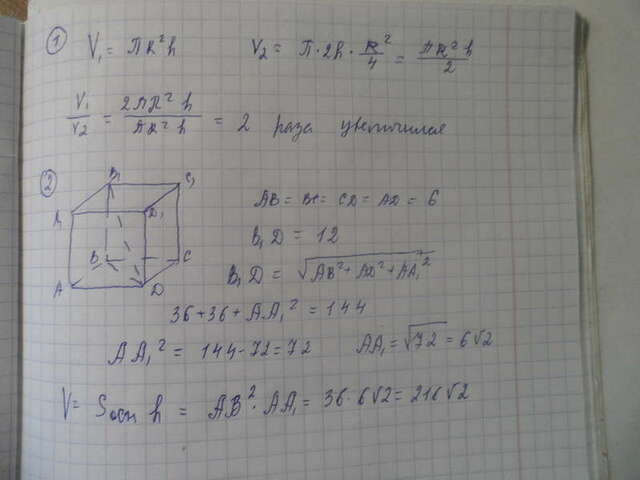 1 V₁ = ПR²h V₂ = П·2h·R²/4 = ПR²h/2
V₁/V₂ = 2ПR²h/ПR²h = 2 раза увеличился
2
B₁ C₁
A₁ D₁
B C
A D
AB = BC = CD = AD = 6
B₁D = 12
B₁D = √AB²+AD²+AA₁²
36+36+AA₁² = 144
AA₁² = 144-72=72 AA₁=√72=6√2
V= Sосн h = AB²·AA₁= 36·6√2=216√2